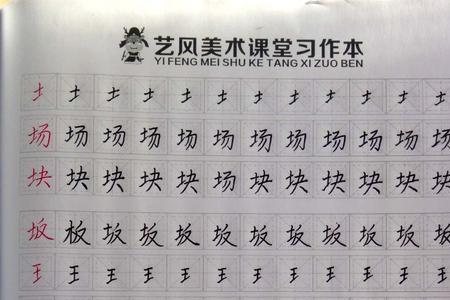 艺风美术课堂习作本
YI FENG MEI SHU KE TANG XI ZUO BEN
土 土 土 土 土 土 土 土 土 土 土 土
场 场 场 场 场 场 场 场 场 场 场 场
块 块 块 块 块 场 块 块 块 块 块 块
坂 板 坂 坂 坂 坂 坂 坂 坂 坂 坂 坂
王 王 王 王 王 王 王 王 王 王 王 王